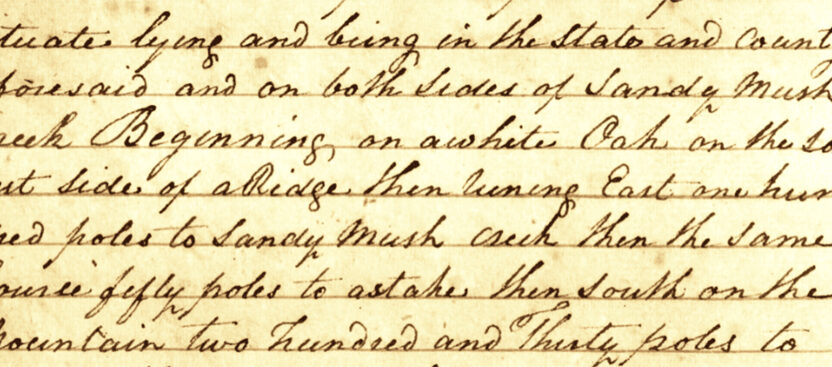 tuate lying and being in the State and Count
foresaid and on both Sides of Sandy Mush
reek Beginning on a white Oak on the So
ut side of a Ridge then runing East one hun
red poles to Sandy Mush Creek then the Same
ource fifty poles to a stake then South on the
ountain two hundred and Thirty poles to